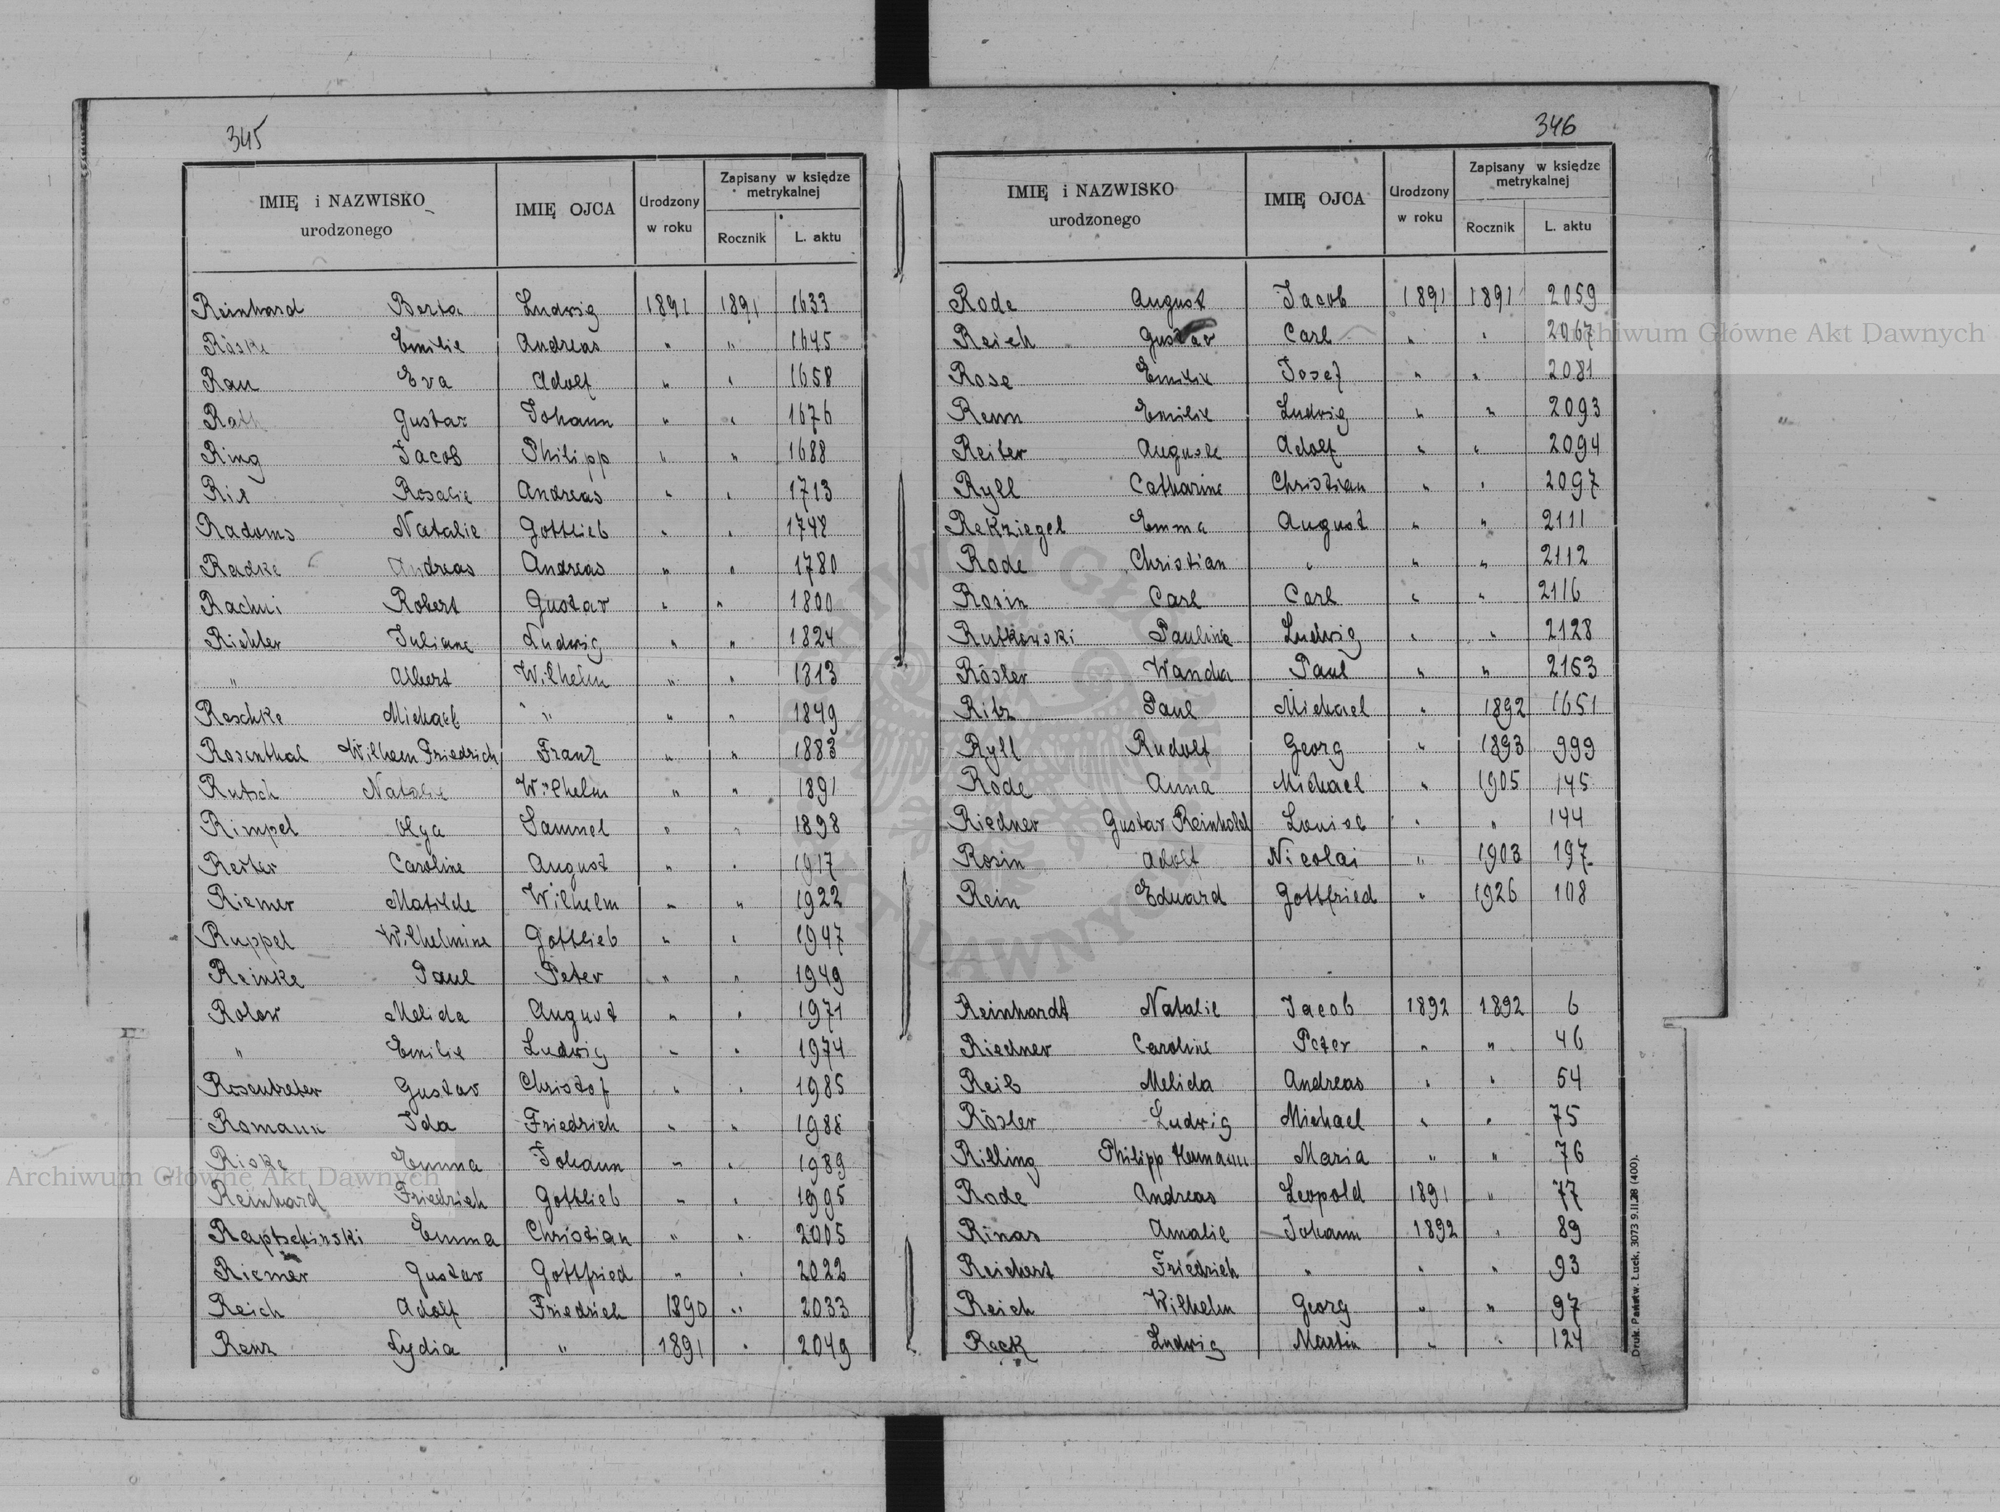 345
IMIĘ i NAZWISKO urodzonego IMIĘ OJCA Urodzony w roku Zapisany w księdze metrykalnej Rocznik L. aktu
Reinhard Berta Ludwig 1891 1891 1633
Röske Emilie Andreas " " 1645
Rau Eva Adolf " " 1658
Rath Gustav Johann " " 1676
Ring Jacob Philipp " " 1688
Riel Rosalie Andreas " " 1713
Radoms Natalie Gottlieb " " 1748
Radke Andreas Andreas " " 1780
Rachui Robert Gustav " " 1800
Richter Juliane Ludwig " " 1824
" Albert Wilhelm " " 1813
Reschke Michael " " " 1849
Rosenthal Wilhelm Friedrich Franz " " 1883
Rutsch Natalie Wilhelm " " 1891
Rimpel Olga Samuel " " 1898
Reiter Caroline August " " 1917
Riemer Matilde Wilhelm " " 1922
Ruppel Wilhelmine Gottlieb " " 1947
Reinke Paul Peter " " 1949
Rolow Melida August " " 1971
" Emilie Ludwig " " 1974
Rosentreter Gustav Christof " " 1985
Romann Ida Friedrich " " 1988
Riske Emma Johann " " 1989
Reinhard Friedrich Gottlieb " " 1995
Raptschinski Emma Christian " " 2005
Riemer Gustav Gottfried " " 2022
Reich Adolf Friedrich 1890 " 2033
Renz Lydia " 1891 " 2049
346
IMIĘ i NAZWISKO urodzonego IMIĘ OJCA Urodzony w roku Zapisany w księdze metrykalnej Rocznik L. aktu
Rode August Jacob 1891 1891 2059
Reich Gustav Carl " " 2067
Rose Emilie Josef " " 2081
Renn Emilie Ludwig " " 2093
Reiter Auguste Adolf " " 2094
Ryll Catharine Christian " " 2097
Rekziegel Emma August " " 2111
Rode Christian " " " 2112
Rosin Carl Carl " " 2116
Rutkowski Pauline Ludwig " " 2128
Rösler Wanda Paul " " 2153
Ritz Paul Michael " 1892 1651
Ryll Rudolf Georg " 1893 999
Rode Anna Michael " 1905 145
Riedner Gustav Reinhold Louise " " 144
Rosin Adolf Nicolai " 1903 197
Rein Eduard Gottfried " 1926 108
Reinhardt Natalie Jacob 1892 1892 6
Riedner Caroline Peter " " 46
Reib Melida Andreas " " 54
Rösler Ludwig Michael " " 75
Rilling Philipp Hermann Maria " " 76
Rode Andreas Leopold 1891 " 77
Rinas Amalie Johann 1892 " 89
Reichert Friedrich " " " 93
Reich Wilhelm Georg " " 97
Reck Ludwig Martin " " 124
Druk. Państw. Łuck. 3073 9.II.28 (400).
Archiwum Główne Akt Dawnych
Archiwum Główne Akt Dawnych
ARCHIWUM GŁÓWNE AKT DAWNYCH